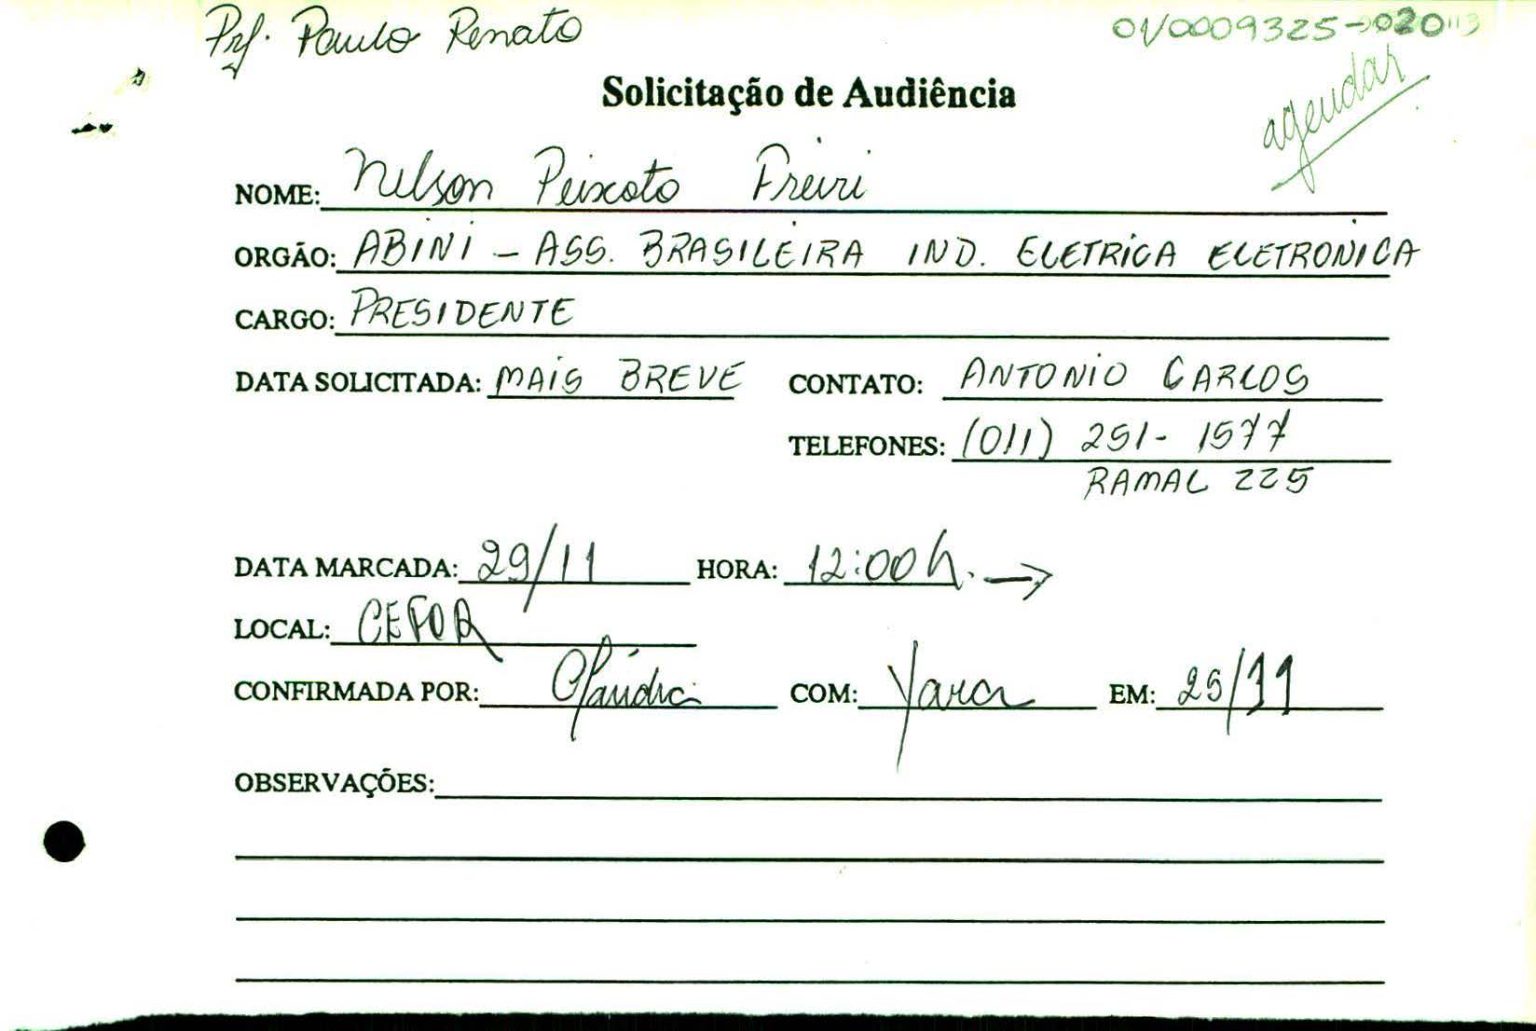 Prf. Paulo Renato
01/0009325-020
agendar
Solicitação de Audiência
NOME: Nelson Peixoto Freiri
ORGÃO: ABINI - ASS. BRASILEIRA IND. ELETRICA ELETRONICA
CARGO: PRESIDENTE
DATA SOLICITADA: MAIS BREVE CONTATO: ANTONIO CARLOS
TELEFONES: (011) 251-1577
RAMAL 225
DATA MARCADA: 29/11 HORA: 12:00h. →
LOCAL: CEFOR
CONFIRMADA POR: Cláudia COM: Yara EM: 25/11
OBSERVAÇÕES: